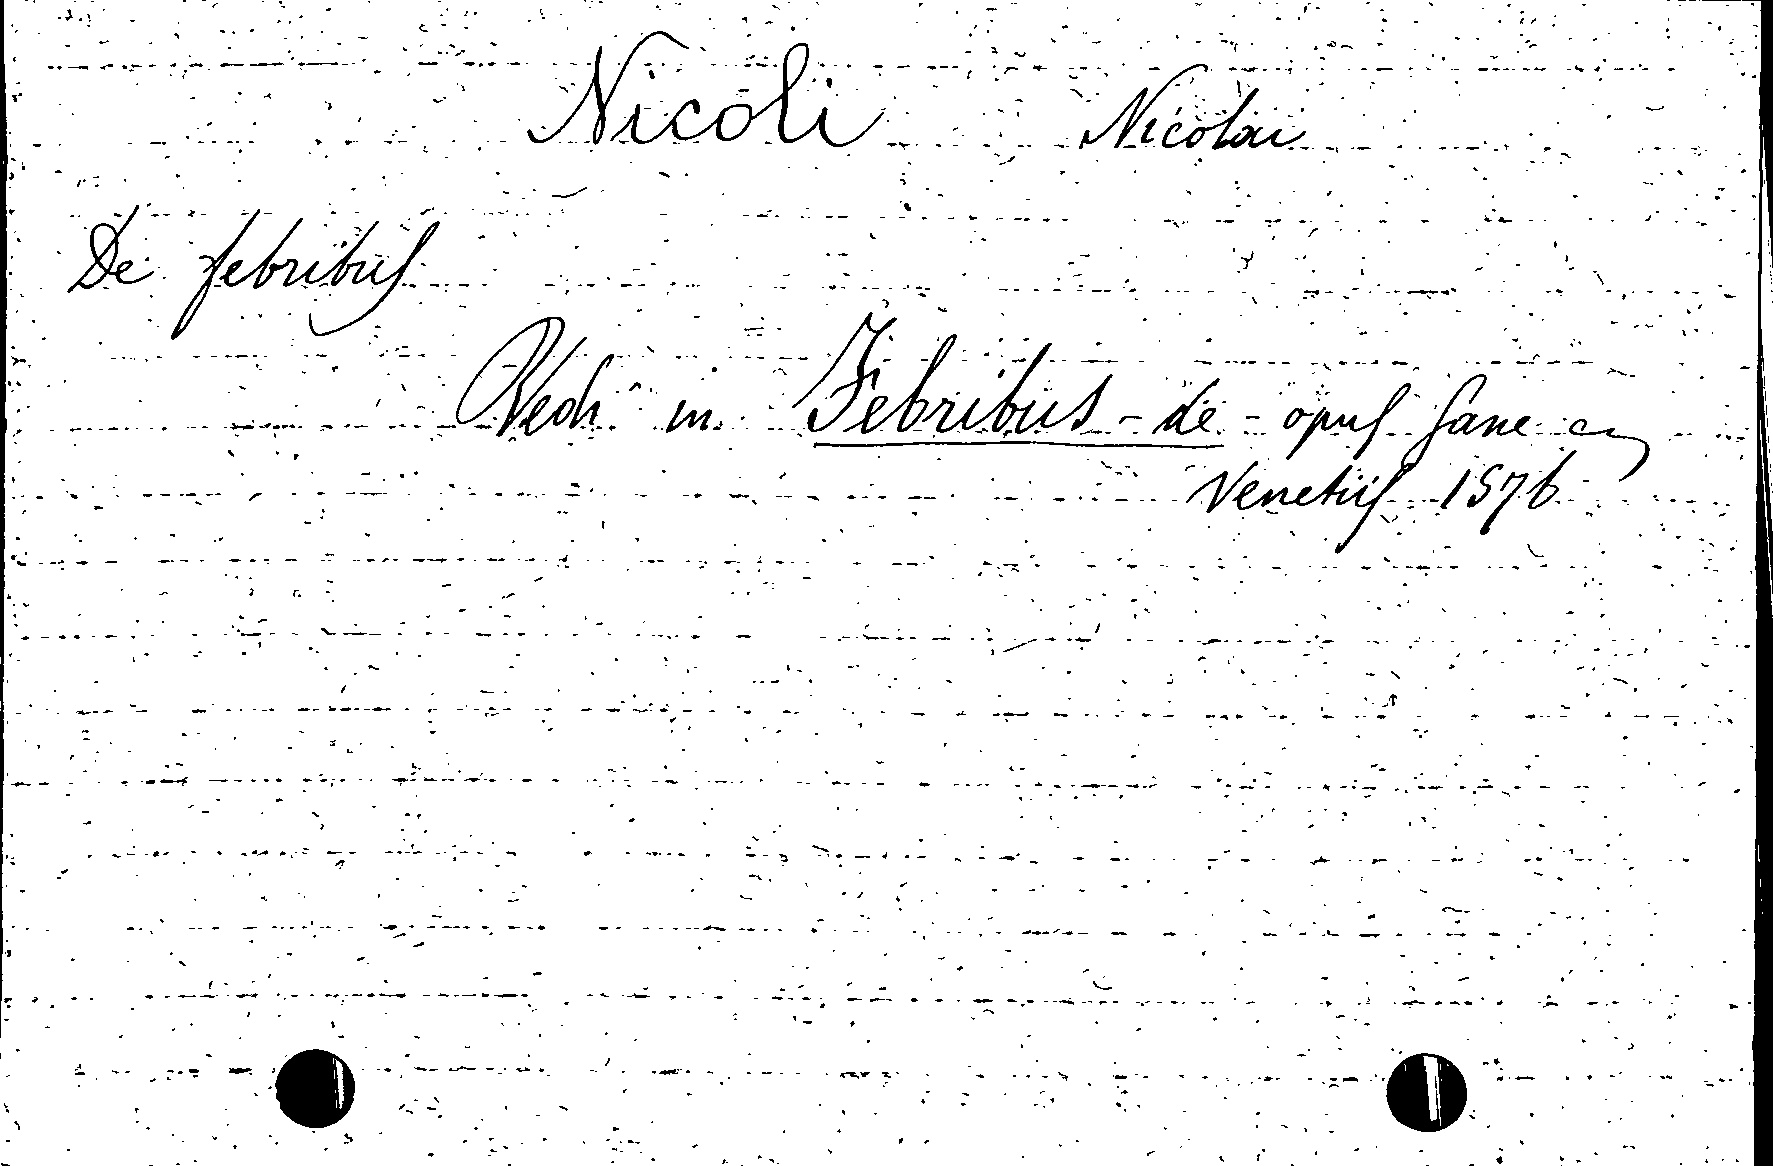 Nicoli Nicolai
De febribus
Vedi in Febribus - de - opus sane
Venetiis 1576